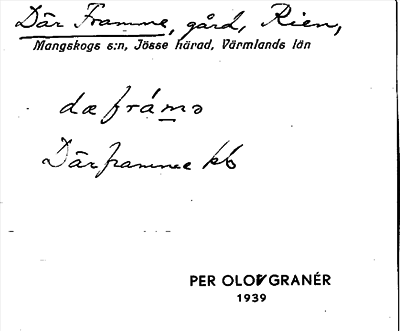 Där Framme, gård, Rien,
Mangskogs s:n, Jösse härad, Värmlands län
dæ frámə
Därframme kb
PER OLOF GRANÉR
1939